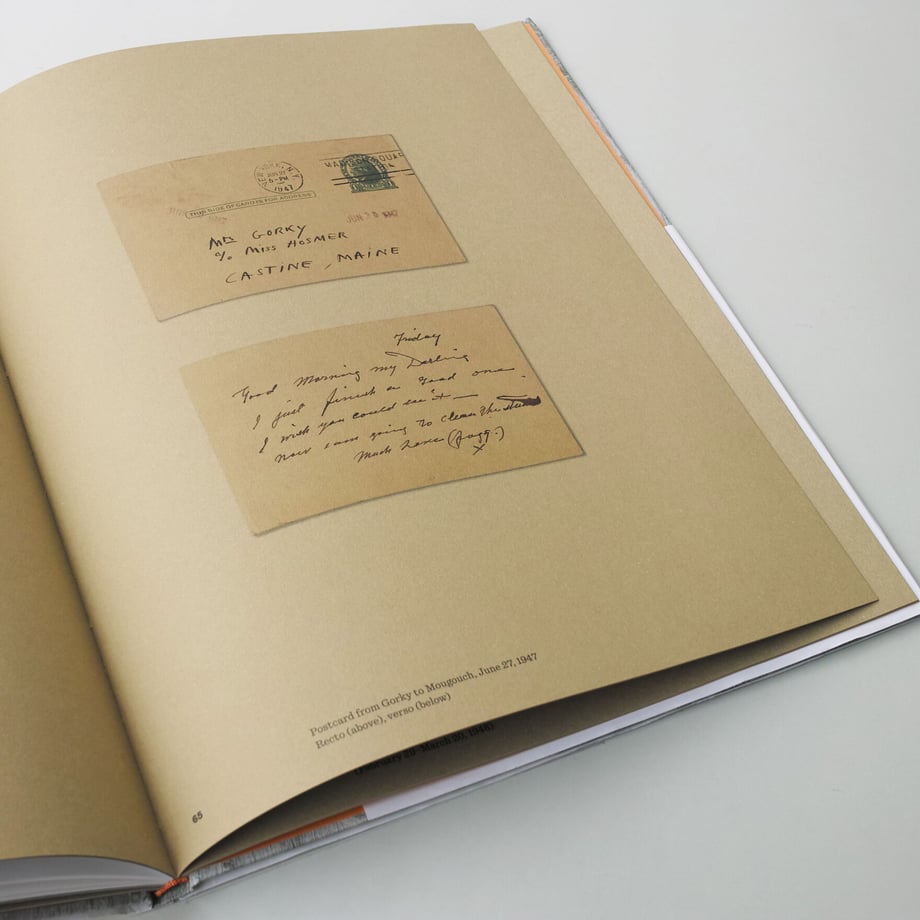 NEW YORK, N.Y.
JUN 27
6-PM
1947
MADISON SQUARE
THIS SIDE OF CARD IS FOR ADDRESS
JUN 28 1947
Mrs GORKY
c/o Miss HOSMER
CASTINE, MAINE
Friday
Good Morning my Darling
I just finish a good one.
I wish you could see it —
now I am going to clean the
Much Love
x
Postcard from Gorky to Mougouch, June 27, 1947
Recto (above), verso (below)
(February 29–March 20, 1948)
65